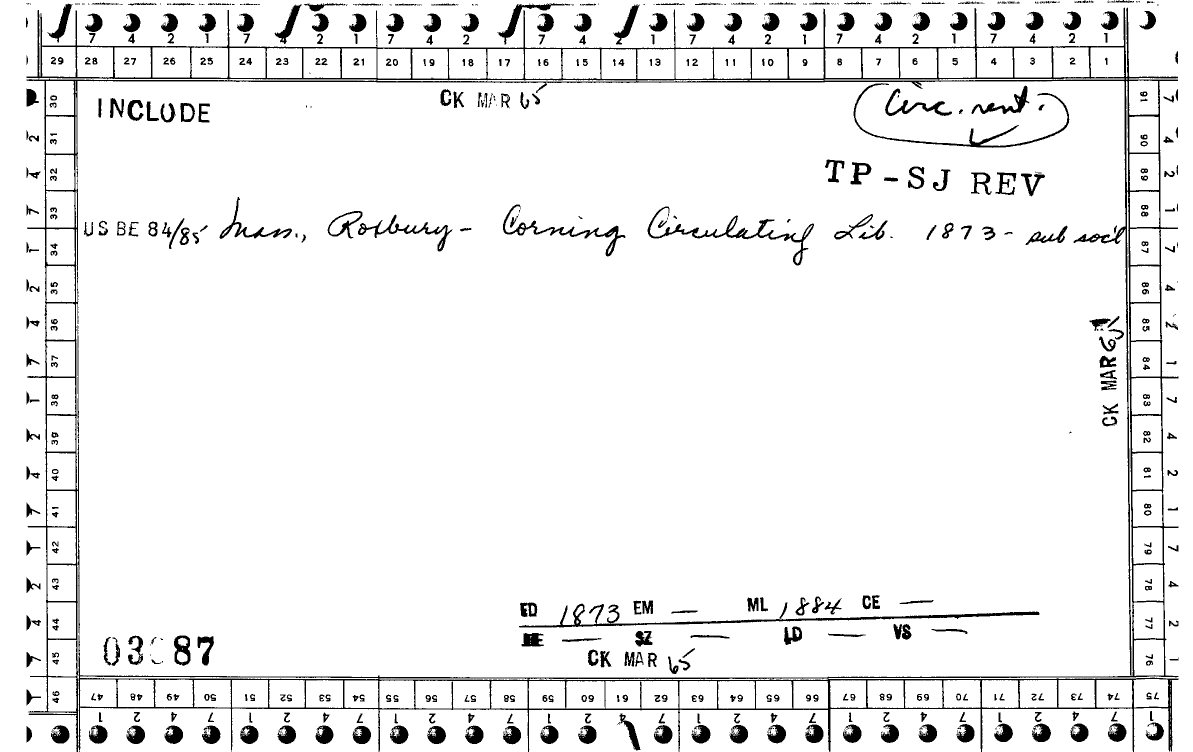 7 4 2 1 7 4 2 1 7 4 2 1 7 4 2 1 7 4 2 1 7 4 2 1 7 4 2 1
29 28 27 26 25 24 23 22 21 20 19 18 17 16 15 14 13 12 11 10 9 8 7 6 5 4 3 2 1
INCLUDE
CK MAR 65
Circ. rent.
TP-SJ REV
US BE 84/85 Mass., Roxbury- Corning Circulating Lib. 1873- sub soc'l
CK MAR 65
ED 1873 EM — ML 1884 CE —
SZ — LD — VS —
CK MAR 65
87
30 31 32 33 34 35 36 37 38 39 40 41 42 43 44 45 46
91 90 89 88 87 86 85 84 83 82 81 80 79 78 77 76
47 48 49 50 51 52 53 54 55 56 57 58 59 60 61 62 63 64 65 66 67 68 69 70 71 72 73 74 75
1 2 4 7 1 2 4 7 1 2 4 7 1 2 4 7 1 2 4 7 1 2 4 7 1 2 4 7